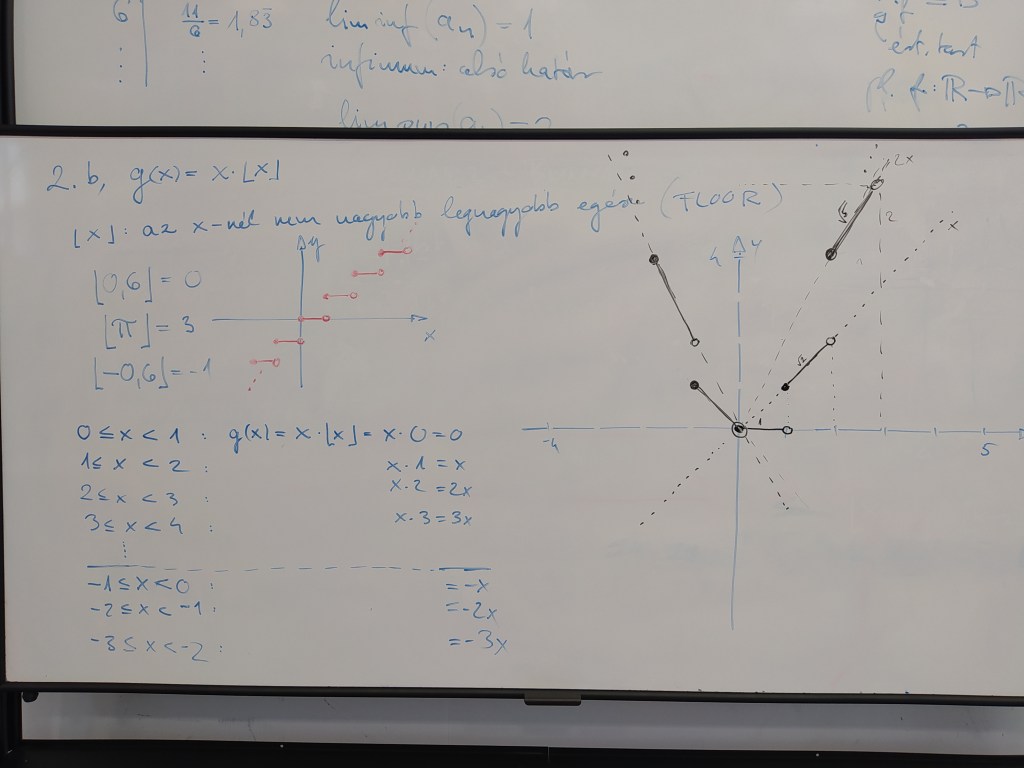 6
11/6 = 1,83̄
lim inf (aₙ) = 1
infimum: alsó határ
ért. tart
pl. f: ℝ→ℝ
2. b, g(x) = x·⌊x⌋
⌊x⌋: az x-nél nem nagyobb legnagyobb egész (FLOOR)
⌊0,6⌋ = 0
⌊π⌋ = 3
⌊-0,6⌋ = -1
y
x
0 ≤ x < 1 : g(x) = x·⌊x⌋ = x·0 = 0
1 ≤ x < 2 : x·1 = x
2 ≤ x < 3 : x·2 = 2x
3 ≤ x < 4 : x·3 = 3x
-1 ≤ x < 0 : = -x
-2 ≤ x < -1 : = -2x
-3 ≤ x < -2 : = -3x
2x
√5
2
x
4 y
√2
1
-4
5